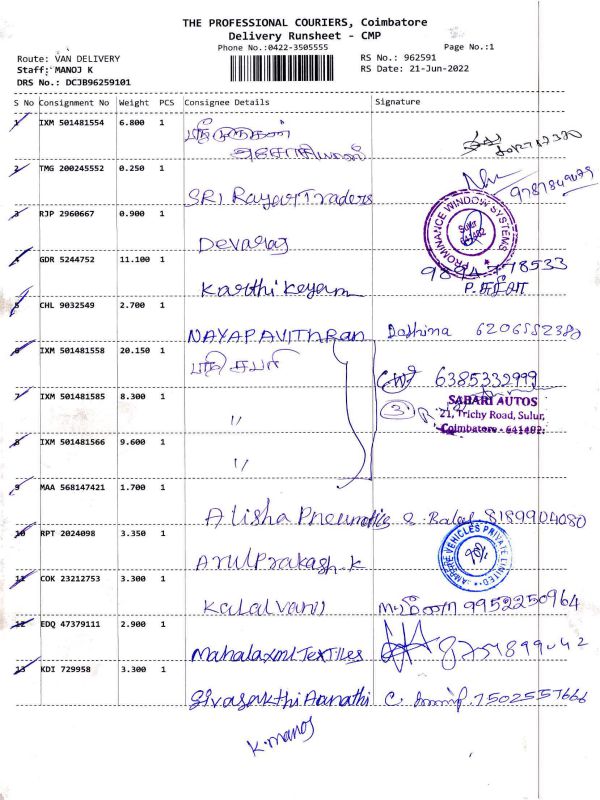 THE PROFESSIONAL COURIERS, Coimbatore
Delivery Runsheet - CMP
Phone No.:0422-3505555 Page No.:1
Route: VAN DELIVERY RS No.: 962591
Staff: MANOJ K RS Date: 21-Jun-2022
DRS No.: DCJB96259101
S No Consignment No Weight PCS Consignee Details Signature
1 IXM 501481554 6.800 1
2 TMG 200245552 0.250 1
SRI Rayear Traders 9787849079
3 RJP 2960667 0.900 1
PROMINANCE WINDOW SYSTEMS
Sulur
641402
Devaraj
4 GDR 5244752 11.100 1
9894778533
Karthikeyam
5 CHL 9032549 2.700 1
NAYAPAVITHRAN Dashina 6206552382
6 IXM 501481558 20.150 1
பதி சபரி
6385332999
7 IXM 501481585 8.300 1
3
SABARI AUTOS
21, Trichy Road, Sulur,
Coimbatore - 641402.
"
8 IXM 501481566 9.600 1
"
9 MAA 568147421 1.700 1
Alisha Pneumatics S. Balaji 8189904080
10 RPT 2024098 3.350 1
AMPERE VEHICLES PRIVATE LIMITED
Arul Prakash.K
11 COK 23212753 3.300 1
Kalalvani 9952250964
12 EDQ 47379111 2.900 1
Mahalaxmi Textiles 8754899042
13 KDI 729958 3.300 1
Sivasakthi Aanathi 7502557666
K.manoj